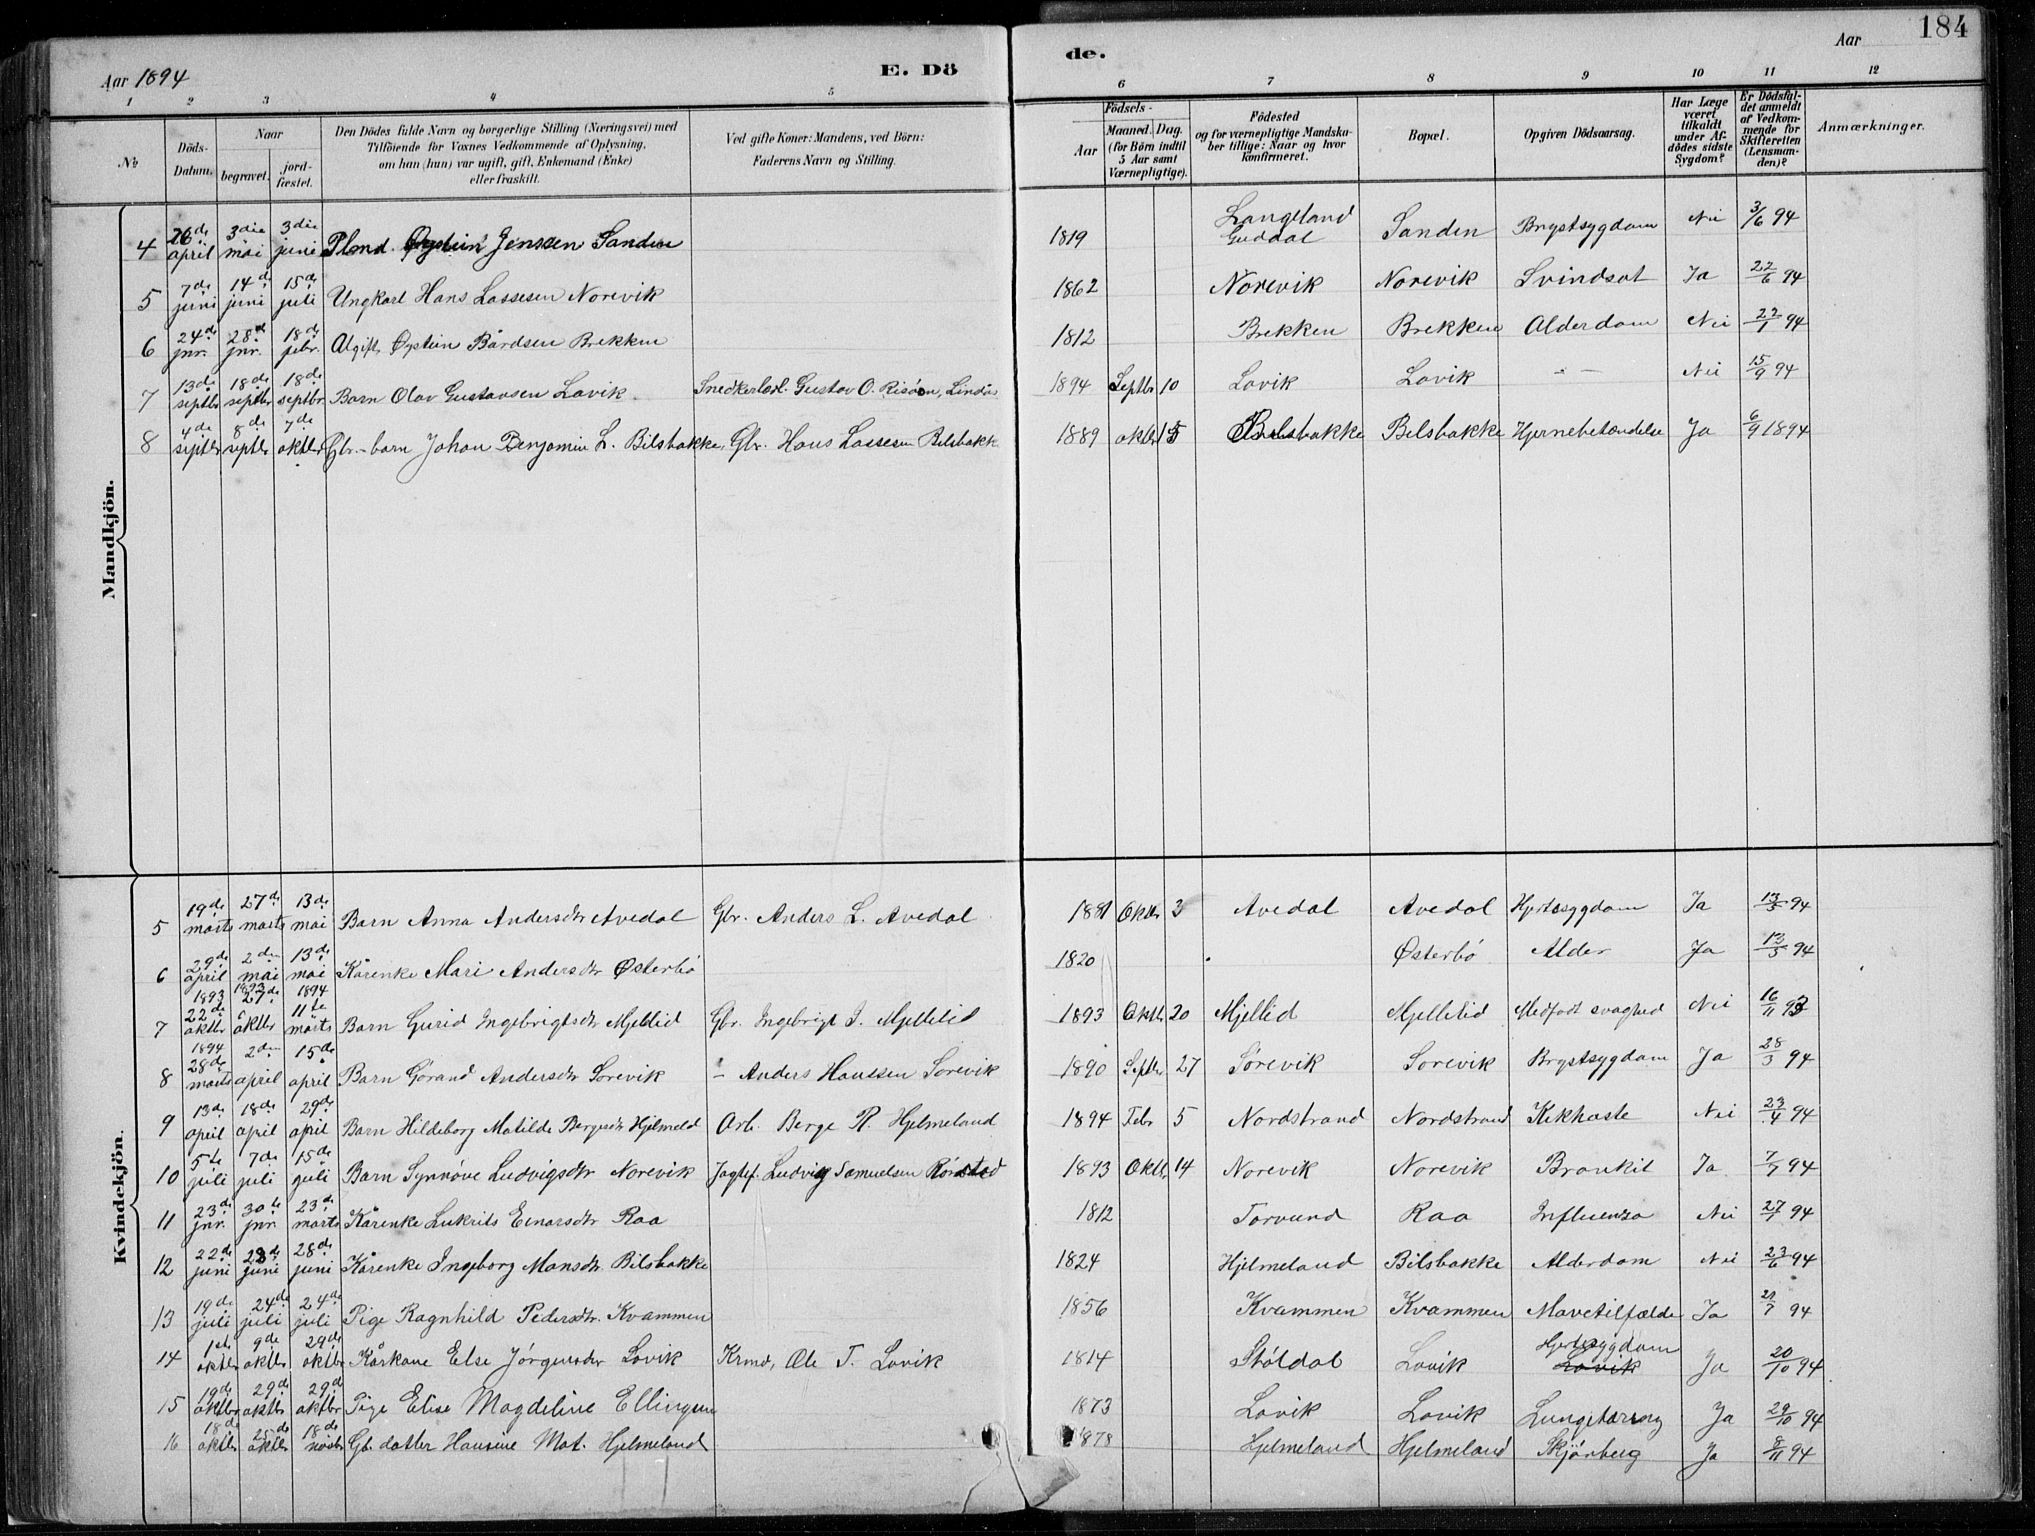 184
Aar 1894
E. Dö
de.
Aar
1 2 3 4 5 6 7 8 9 10 11 12
№
Döds-Datum.
Naar
begravet.
jord-fæstet.
Den Dödes fulde Navn og borgerlige Stilling (Næringsvei) med Tilföiende for Voxnes Vedkommende af Oplysning, om han (hun) var ugift, gift, Enkemand (Enke) eller fraskilt.
Ved gifte Koner: Mandens, ved Börn: Faderens Navn og Stilling.
Födsels-
Aar
Maaned. Dag.
(for Börn indtil 5 Aar samt Værnepligtige).
Födested og for værnepligtige Mandskaber tillige: Naar og hvor konfirmeret.
Bopæl.
Opgiven Dödsaarsag.
Har Læge været tilkaldt under Afdødes sidste Sygdom?
Er Dödsfaldet anmeldt af Vedkommende for Skifteretten (Lensmanden)?
Anmærkninger.
Mandkjön.
4 26de april 3die mai 3die juni Øystein Jenssen Sanden 1819 Langeland Guddal Sanden Brystsygdom Nei 3/6 94
5 7de juni 14de juni 15de juli Ungkarl Hans Lassesen Norevik 1862 Norevik Norevik Svindsot Ja 22/6 94
6 24de jnr. 28de jnr. 18de febr. Øystein Bårdsen Brekken 1812 Brekken Brekken Alderdom Nei 27/1 94
7 13de septbr 18de septbr 18de septbr. Barn Olav Gustavsen Lavik Gustav O. Risöen, Lindås 1894 Septbr 10 Lavik Lavik - - Nei 15/9 94
8 4de septbr 8de septbr 7de oktbr Gbr.-barn Johan Benjamin L. Bilsbakke, Gbr. Hans Lassesen Bilsbakk 1889 oktbr 15 Bilsbakke Bilsbakke Hjernebetændelse Ja 6/9 1894
Kvindekjön.
5 19de marts 27de marts 13de mai Barn Anna Andersdtr Avedal Gbr. Anders L. Avedal 1881 Oktbr 3 Avedal Avedal Hjertesygdom Ja 13/5 94
6 29de april 2den mai 13de mai Kårenke Mari Andersdtr Østerbö 1820 Østerbö Alder Ja 13/5 94
7 1893 22de oktbr 1893 27de oktbr 1894 11te marts Barn Gurid Ingebrigtsdtr Mjellid Gbr. Ingebrigt I. Mjellid 1893 Oktbr 20 Mjellid Mjellid Medfødt svaghed Nei 16/11 93
8 1894 28de marts 2den april 15de april Barn Görand Andersdtr Sørevik - Anders Hanssen Sørevik 1890 Septbr 27 Sørevik Sørevik Brystsygdom Ja 28/3 94
9 13de april 18de april 29de april Barn Hildeborg Matilde Bergesdtr Hjelmeld Arb. Berge R. Hjelmeland 1894 Febr 5 Nordstrand Nordstrand Kikhoste Nei 23/4 94
10 5te juli 7de juli 15de juli Barn Synnöve Ludvigsdtr Norevik Ludvig Samuelsen 1893 Oktbr 14 Norevik Norevik Bronkit Ja 7/7 94
11 23de jnr. 30te jnr. 23de marts Kårenke Lukrits Einarsdtr Raa 1812 Torvund Raa Influenza Nei 27/1 94
12 22de juni 28de juni 28de juni Kårenke Ingeborg Monsdtr. Bilsbakke 1824 Hjelmeland Bilsbakke Alderdom Nei 23/6 94
13 19de juli 24de juli 24de juli Pige Ragnhild Pedersdtr. Kvammen 1856 Kvammen Kvammen Mavetilfælde Ja 94
14 1ste oktbr 9de oktbr 29de oktbr Kårkone Else Jörgensdtr Lavik Krmd, Ole T. Lavik 1814 Stöldal Lavik Hjertesygdom Lavik Ja 20/10 94
15 19de oktbr 29de oktbr 29de oktbr Pige Elise Magdeline Ellingsen 1873 Lavik Lavik Lungetæring Ja 29/10 94
16 18de oktbr 25de oktbr 18de Gb.datter Hansine Mat. Hjelmeland 1878 Hjelmeland Hjelmeland Ja 8/11 94